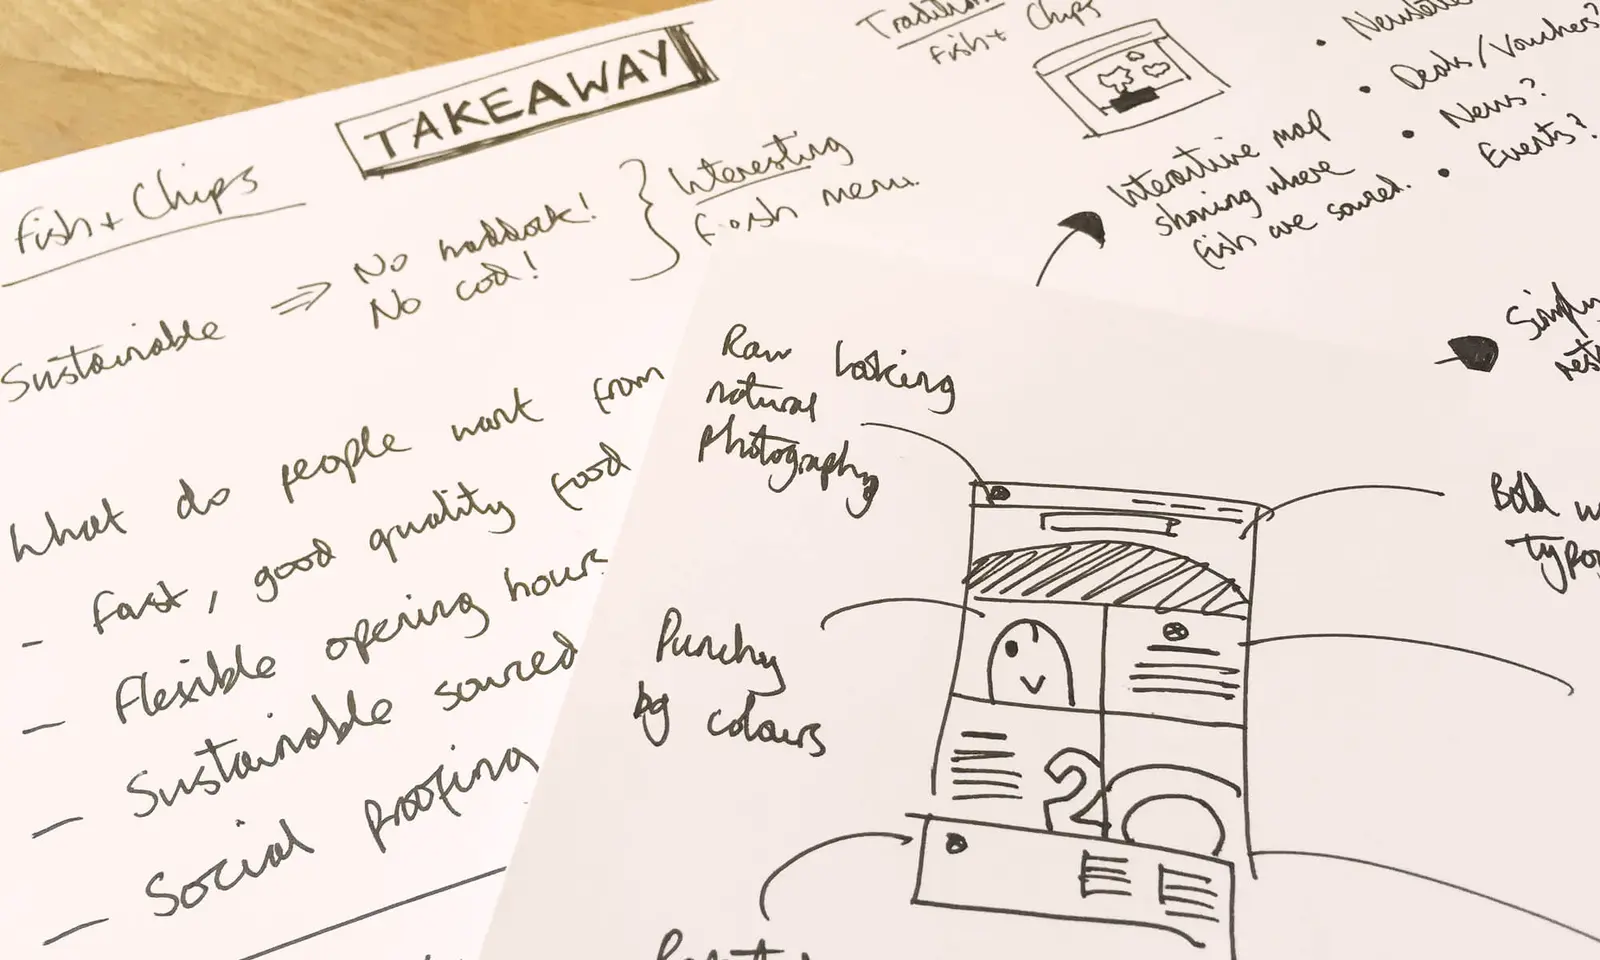 TAKEAWAY
Fish + Chips
Sustainable ⇒ No haddock!
No cod!
Interesting
fish menu.
What do people want from
- fast, good quality food
- flexible opening hours
- Sustainable sourced
- Social proofing
Fish + Chips
Interactive map
showing where
fish are sourced.
• Deals/Vouchers?
• News?
• Events?
Raw looking
natural
photography
Punchy
bg colours
Simply
Bold